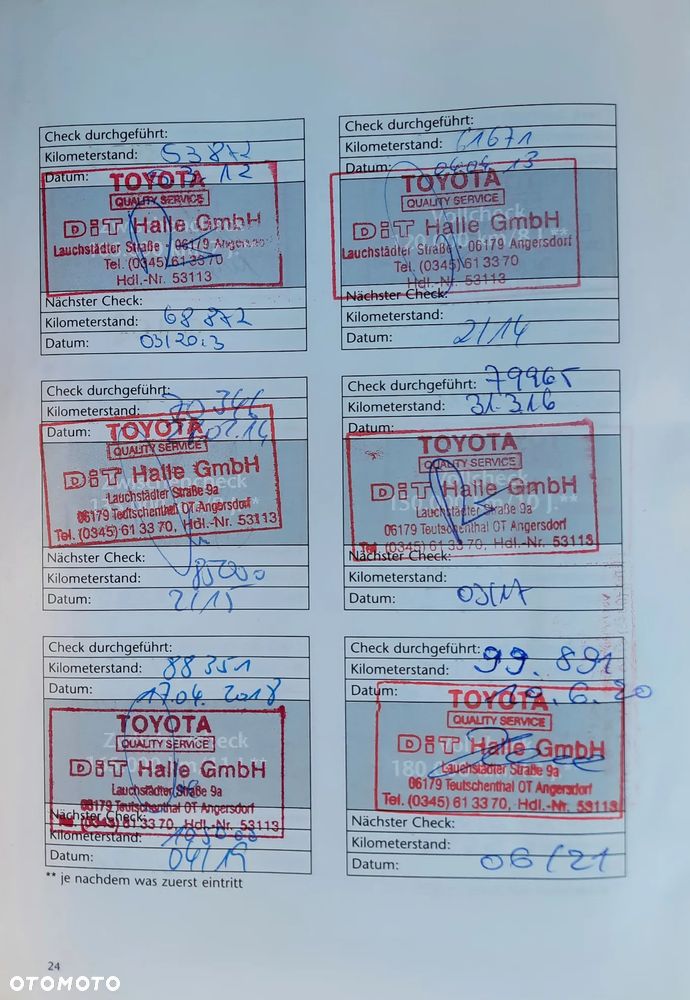 Check durchgeführt:
Kilometerstand: 53872
Datum: 12
TOYOTA
QUALITY SERVICE
DiT Halle GmbH
Lauchstädter Straße · 06179 Angersdorf
Tel. (0345) 61 33 70
Hdl.-Nr. 53113
Nächster Check:
Kilometerstand: 68872
Datum: 03/2013
Check durchgeführt:
Kilometerstand: 61671
Datum: 04.04.13
TOYOTA
QUALITY SERVICE
Vollcheck
DiT Halle GmbH
Lauchstädter Straße · 06179 Angersdorf
Tel. (0345) 61 33 70
Hdl.-Nr. 53113
Nächster Check:
Kilometerstand:
Datum: 2/14
Check durchgeführt:
Kilometerstand: 70341
Datum: 02.14
TOYOTA
QUALITY SERVICE
Zwischencheck
DiT Halle GmbH
Lauchstädter Straße 9a
06179 Teutschenthal OT Angersdorf
Tel. (0345) 61 33 70, Hdl.-Nr. 53113
Nächster Check:
Kilometerstand: 85000
Datum: 2/15
Check durchgeführt: 79965
Kilometerstand: 31.3.16
Datum:
TOYOTA
QUALITY SERVICE
DiT Halle GmbH
Lauchstädter Straße 9a
06179 Teutschenthal OT Angersdorf
Tel. (0345) 61 33 70, Hdl.-Nr. 53113
Nächster Check:
Kilometerstand:
Datum: 03/17
Check durchgeführt:
Kilometerstand: 88351
Datum: 17.04.2018
TOYOTA
QUALITY SERVICE
DiT Halle GmbH
Lauchstädter Straße 9a
06179 Teutschenthal OT Angersdorf
Tel. (0345) 61 33 70, Hdl.-Nr. 53113
Nächster Check:
Kilometerstand:
Datum: 04/19
Check durchgeführt:
Kilometerstand: 99.891
Datum: 6.20
TOYOTA
QUALITY SERVICE
DiT Halle GmbH
Lauchstädter Straße 9a
06179 Teutschenthal OT Angersdorf
Tel. (0345) 61 33 70, Hdl.-Nr. 53113
Nächster Check:
Kilometerstand:
Datum: 06/21
** je nachdem was zuerst eintritt
24
OTOMOTO